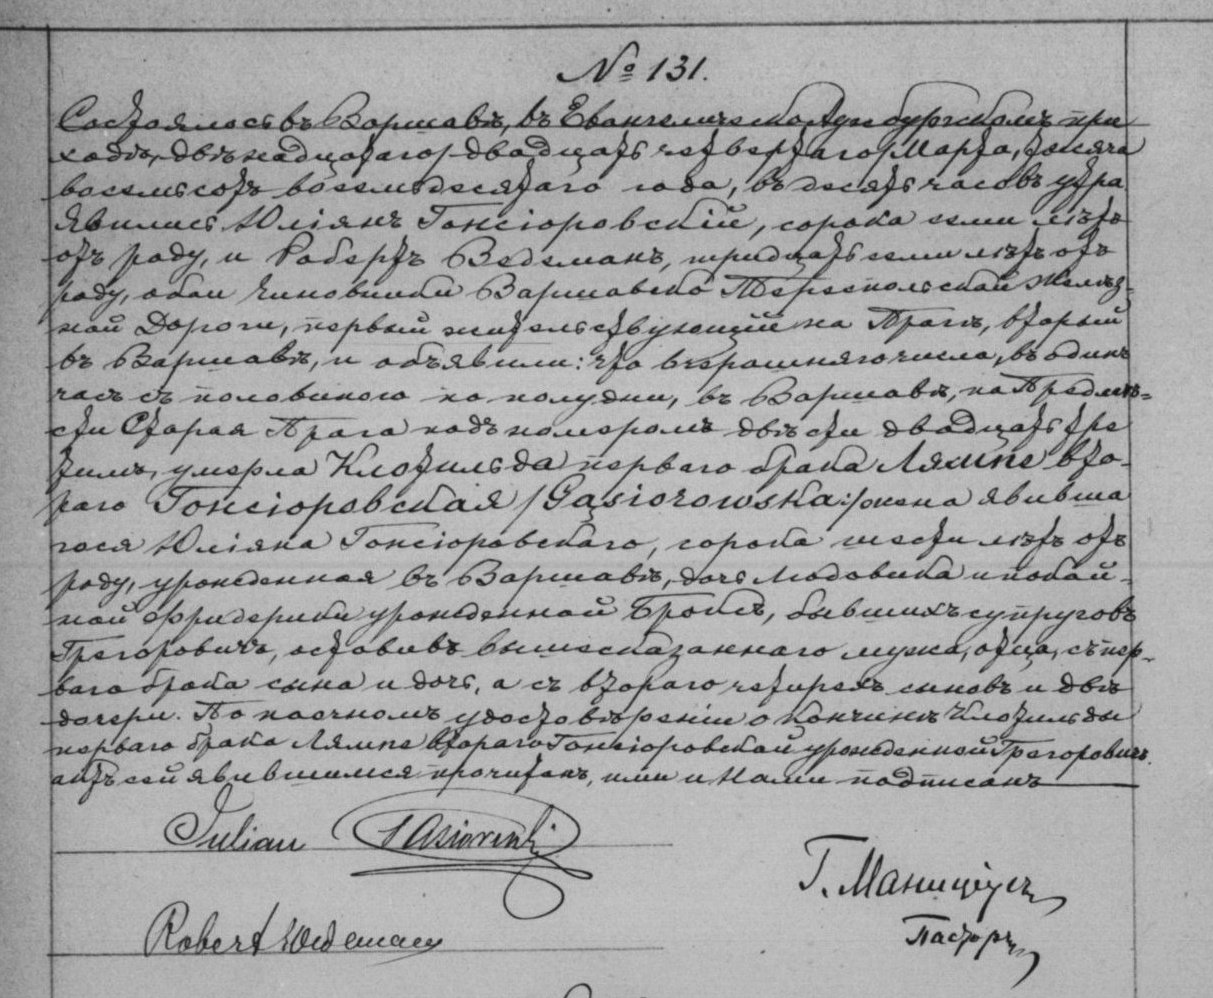 № 131.
Состоялось въ Варшавѣ, въ Евангелическо Аугсбургскомъ при
ходѣ, двѣнадцатаго/двадцать четвертаго/Марта, тысяча
восемьсотъ восемьдесятаго года, въ десять часовъ утра.
Явились Юліянъ Гонсіоровскій, сорока семи лѣтъ
отъ роду, и Робертъ Ведеманъ, тридцать семи лѣтъ отъ
роду, обаи чиновники Варшавско Тереспольской Желѣз-
ной Дороги, первый жительствующій на Прагѣ, вторый
въ Варшавѣ, и объявили: что вчерашняго числа, въ одинъ
часъ съ половиною по полудни, въ Варшавѣ, на Предмѣ=
стіи Старая Прага подъ номеромъ двѣсти двадцать тре
тимъ, умерла Клотильда перваго брака Лямпе вто-
раго Гонсіоровская /Gąsiorowska:/жена явивша
гося Юліяна Гонсіоровскаго, сорока шести лѣтъ отъ
роду, урожденная въ Варшавѣ, дочь Людовика и покой-
ной Фридерики урожденной Броксъ, бывшихъ супруговъ
Грегоровичъ, оставивъ вышесказаннаго мужа, отца, съ пер-
ваго брака сына и дочь, а съ втораго четырехъ сыновъ и двѣ
дочери. По наочномъ удостовѣреніи о кончинѣ Клотильды
перваго брака Лямпе втораго Гонсіоровской урожденной Грегоровичъ.
актъ сей явившимся прочитанъ, ими и Нами подписанъ
Julian Gąsiorowski
Г. Маниціусъ
Robert Wedemann
Пасторъ